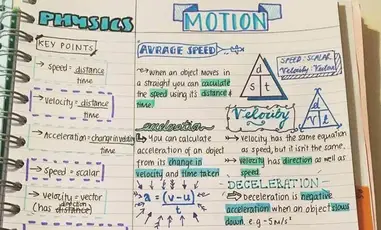 PHYSICS
KEY POINTS
→ Speed = distance
time
→ Velocity = distance
time
→ Acceleration = change in velocity
time
→ Speed = scalar
→ Velocity = vector
(has direction)
MOTION
AVRAGE SPEED
when an object moves in
a straight you can calculate
the speed using its distance &
time
d
s t
SPEED: SCALAR
Velocity: Vector
acceleration
You can calculate
acceleration of an object
from its change in
velocity and time taken
a = (v-u)
t
Velocity
d
V t
→ velocity has the same equation
as speed, but it isn't the same.
→ velocity has direction as well as
speed
DECELERATION
→ Deceleration is negative
acceleration when an object slows
down. e.g -5m/s²